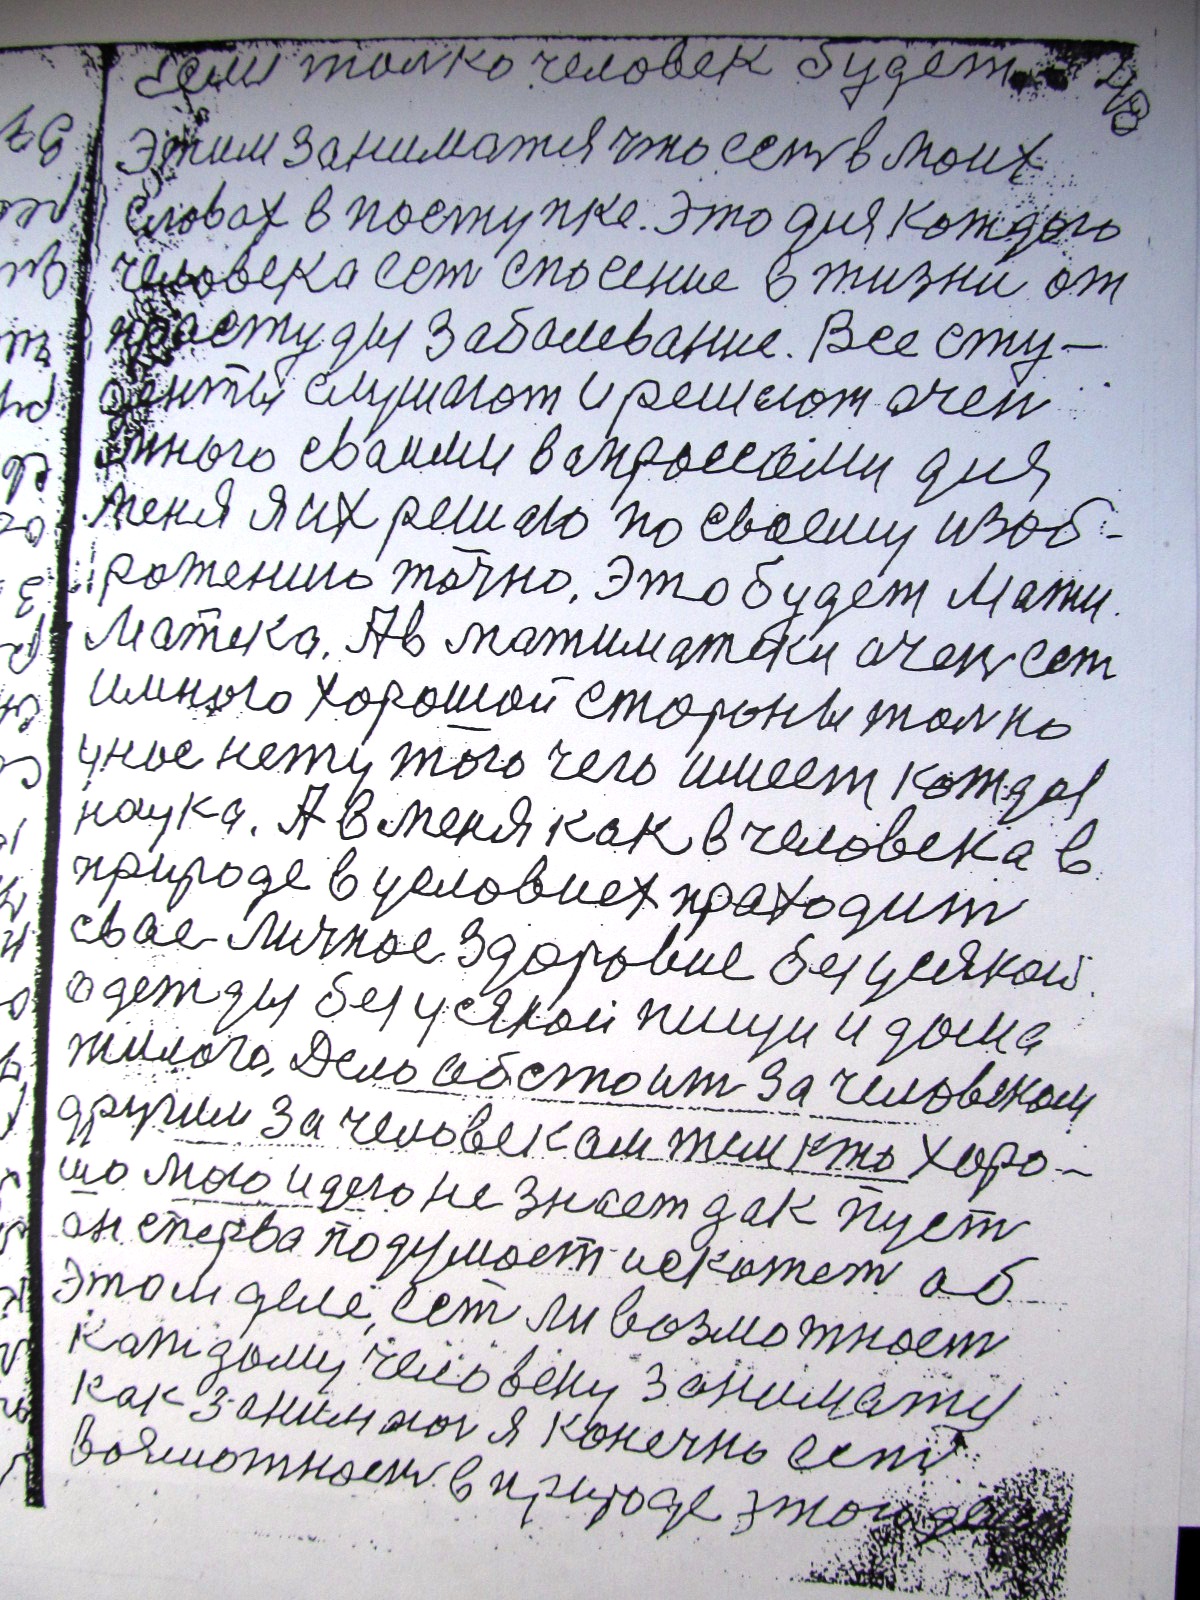 Если толко человек будет 48
Этим заниматся что сет в моих
словах в поступке. Это для каждого
человека сет спосение в жизни от
простуды заболевание. Все сту-
денты слушают и решают очен
много сваими вапроссами для
меня я их решаю по своему изоб-
ражению точно. Это будет Мати
Матека. А в матиматеки очен сет
имного хорошой стороны толко
унее нету того чего имеет каждая
наука. А в меня как в человека в
природе в условиех праходит
свае личное здоровие без усякой
одежды без усякой пищи и дома
жилого. Дело абстоит за человеком
другим за человекам тем кто хоро-
шо маю идею не знает дак пуст
он сперва подумает искажет об
этом деле, сет ли возможност
каждому человеку занимату
как занималя я конечно сет
возможност в природе этого